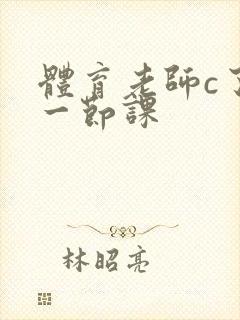 體育老師c了
一節課
林昭亮